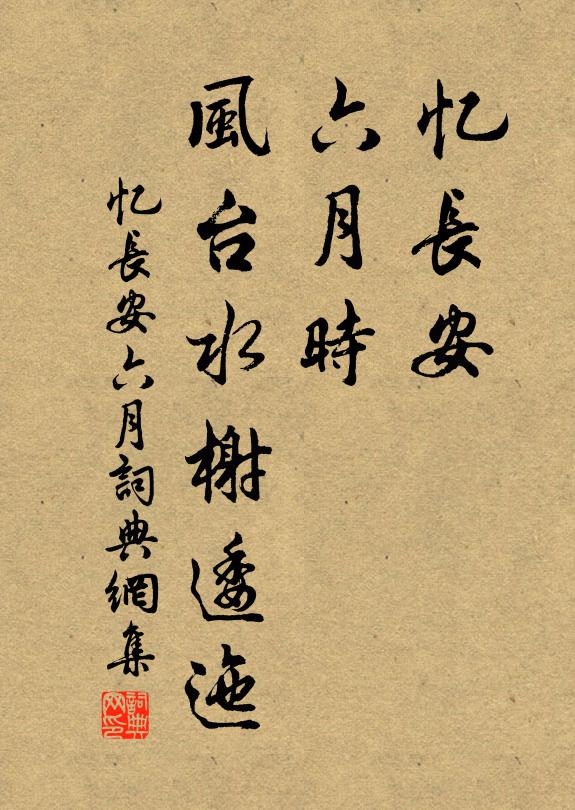 忆長安
六月時
風台水榭逶迤
忆長安六月詞典網集
詞典网印